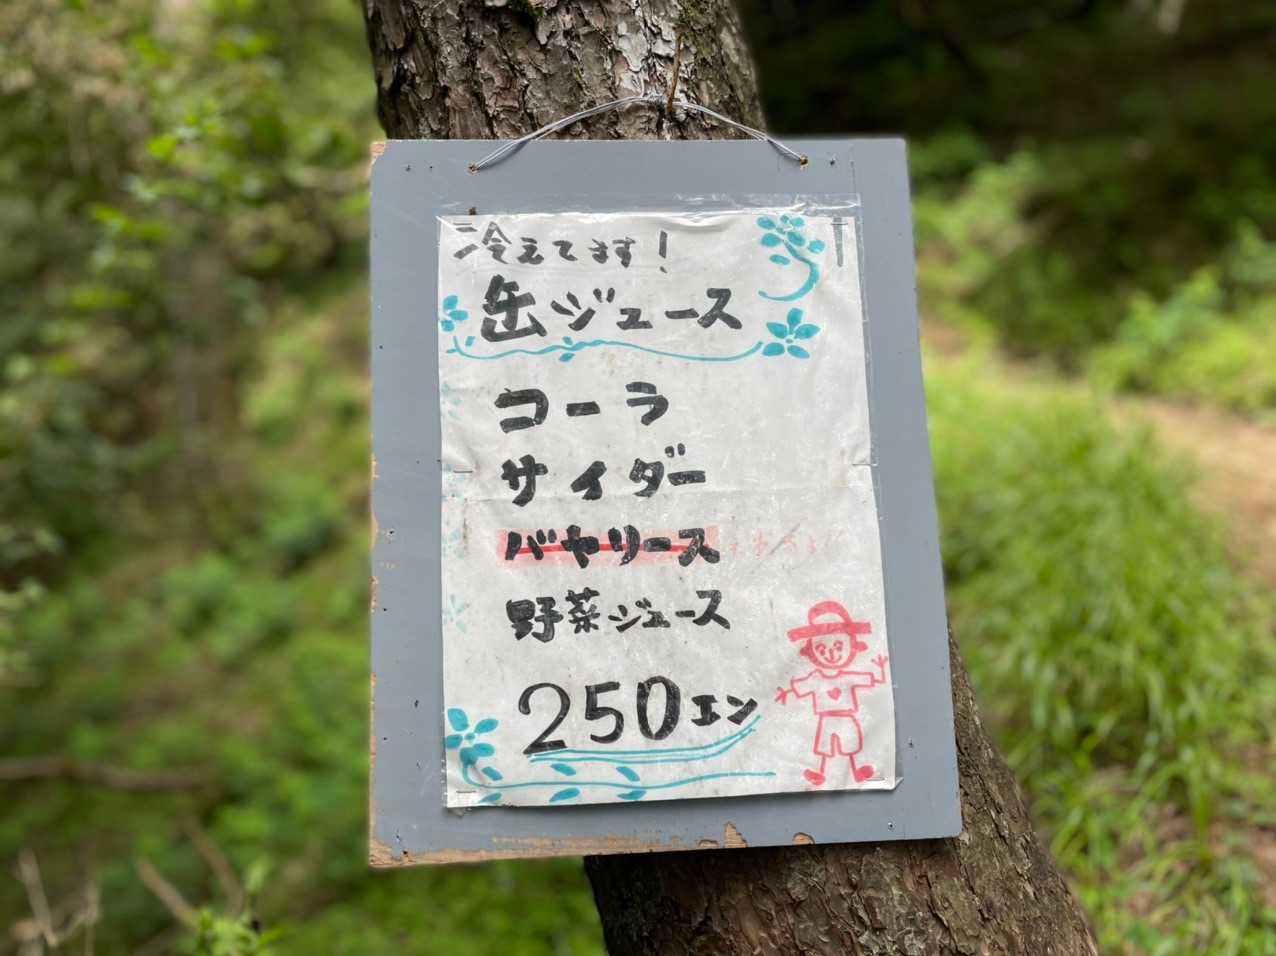 冷えてます!
缶ジュース
コーラ
サイダー
バヤリース
野菜ジュース
250エン